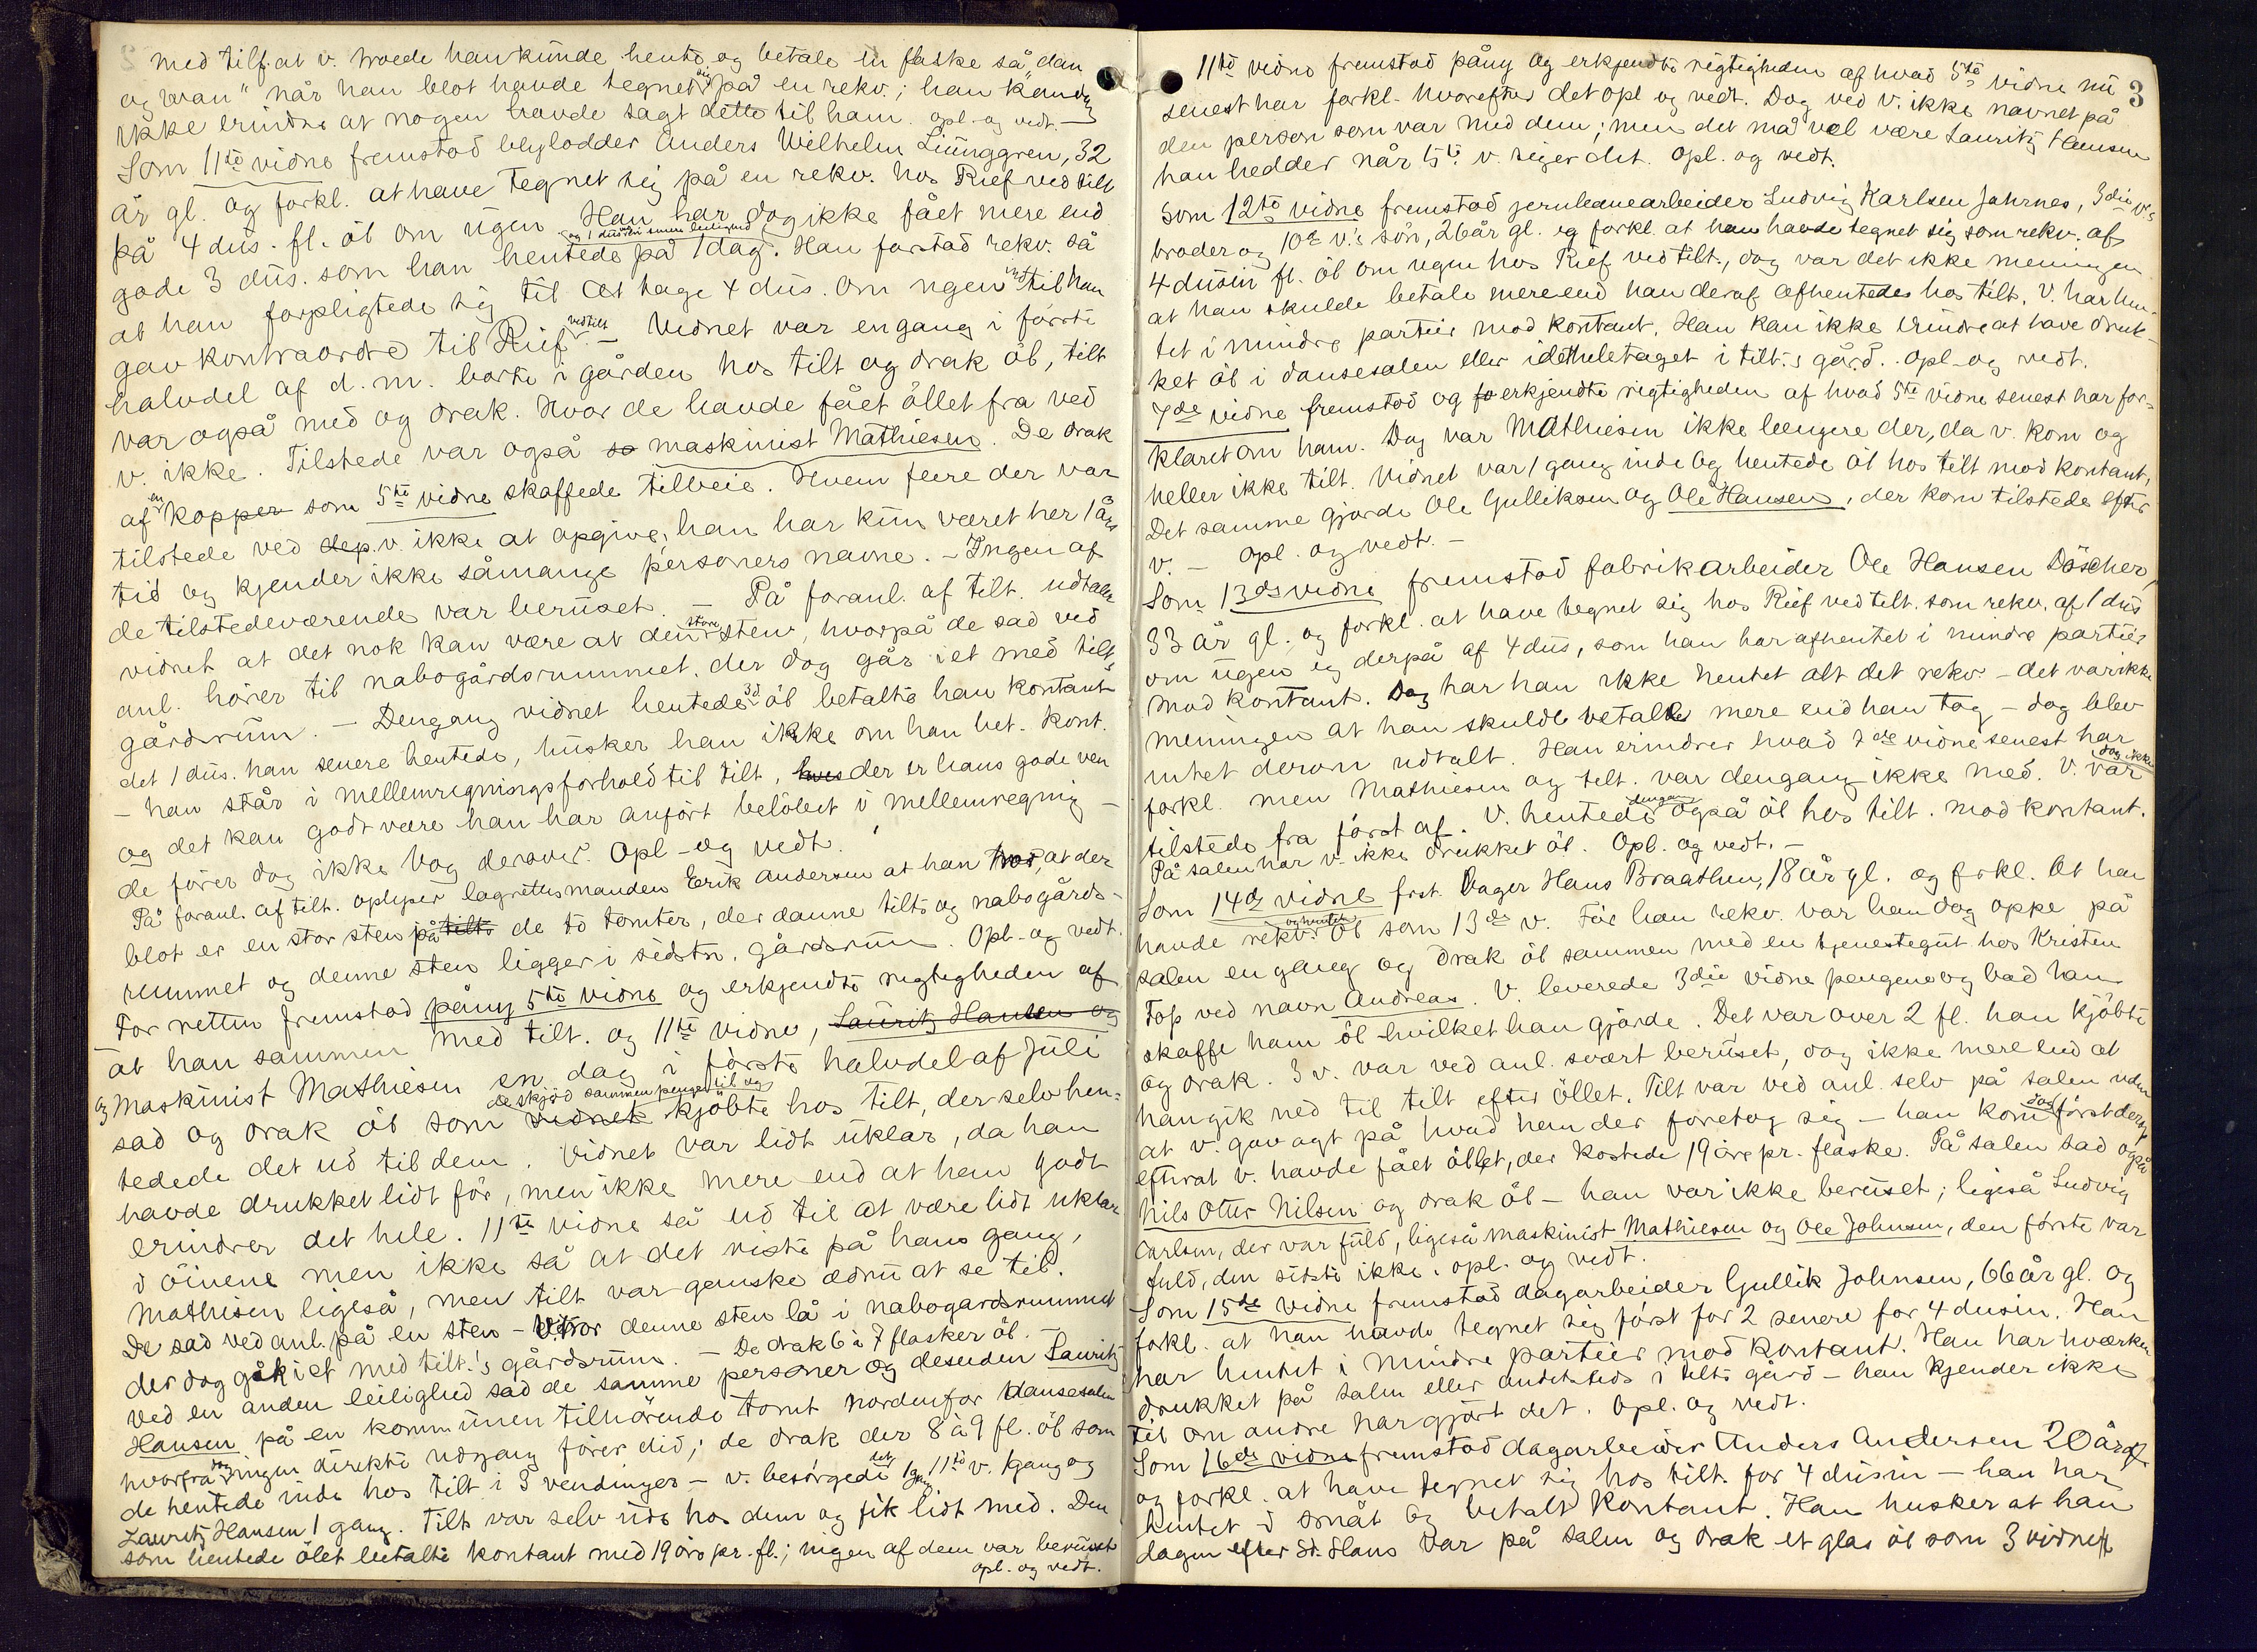 med tilf. at v. troede han kunde hente og betale en flaske så „dan
og wan" når han blot havde tegnet sig på en rekv.; han kan dog
ikke erindre at nogen havde sagt dette til ham. opl. og vedt. —
Som 11te vidne fremstod Anders Wilhelm Liunggren, 32
år gl. og forkl. at have tegnet sig på en rekv. hos Rief ved tilt
på 4 dus. fl. öl om ugen. Han har dog ikke fået mere end
gode 3 dus. som han hentede på 1 dag og 1 dus. ved en senere leilighed. Han forstod rekv. så
at han forpligtede sig til at tage 4 dus. om ugen indtil han
gav kontraordre til Rief ved tilt. — Vidnet var engang i förste
halvdel af d. m. borte i gården hos tilt og drak öl, tilt
var også med og drak. Hvor de havde fået öllet fra ved
v. ikke. Tilstede var også so maskinist Mathiesen. De drak
af en kopper som 5te vidne skaffede tilveie. Hvem flere der var
tilstede ved dep. v. ikke at opgive, han har kun været her 1 års
tid og kjender ikke såmange personers navne. — Ingen af
de tilstedeværende var beruset. — På foranl. af tilt. udtaler
vidnet at det nok kan være at den store sten, hvorpå de sad ved
anl. hörer til nabogårdsrummet, der dog går i et med tilts
gårdsrum. — Dengang vidnet hentede 3 d. öl betalte han kontant
det 1 dus. han senere hentede, husker han ikke om han bet. kont.
— han står i mellemregningsforhold til tilt, hvis der er hans gode ven
og det kan godt være han har anfört belöbet i mellemregning —
de förer dog ikke bog derover. Opl. og vedt.
På foranl. af tilt. oplyser lagrettesmanden Erik Andersen at han tror, at der
blot er en stor sten på tilts de to tomter, der danne tilts og nabogårds-
rummet og denne sten ligger i sidstn. gårdsrum. Opl. og vedt.
For retten fremstod påny 5te vidne og erkjendte rigtigheden af
at han sammen med tilt. og 11te vidne, Lauritz Hansen og
og Maskinist Mathiesen en dag i förste halvdel af Juli
sad og drak öl som vidnet de skjöd sammen penger til og kjöbte hos tilt, der selv hen-
tedede det ud til dem. Vidnet var lidt uklar, da han
havde drukket lidt för, men ikke mere end at han godt
erindrer det hele. 11te vidne så ud til at være lidt uklar
i öinene men ikke så at det viste på hans gang,
Mathisen ligeså, men tilt var ganske ædru at se til.
De sad ved anl. på en sten — V. tror denne sten lå i nabogardsrummet
der dog gik i et med tilt.'s gårdsrum. — De drak 6 à 7 flasker öl. —
Ved en anden leilighed sad de samme personer og desuden Lauritz
Hansen på en kommunen tilhörende tomt nordenfor dansesalen
hvorfra dog ingen direkte udgang förer did; de drak der 8 à 9 fl. öl som
de hentede inde hos tilt i 3 vendinger — v. besörgede det 1 gang, 11te v. 1 gang og
Lauritz Hansen 1 gang. Tilt var selv ude hos dem og fik lidt med. Den
som hentede ölet betalte kontant med 19 öre pr. fl.; ingen af dem var beruset
opl. og vedt.
3
11te vidne fremstod påny og erkjendte rigtigheden af hvad 5te vidne nu
senest har forkl. hvorefter det opl og vedt. Dog ved v. ikke navnet på
den person som var med dem; men det må vel være Lauritz Hansen
han hedder når 5te v. siger det. Opl. og vedt.
Som 12te vidne fremstod jernbanearbeider Ludvig Karlsen Jahrnes, 3die v.s
broder og 10de v.'s sön, 26 år gl. og forkl. at han havde tegnet sig som rekv. af
4 dusin fl. öl om ugen hos Rief ved tilt., dog var det ikke meningen
at han skulde betale mere end han deraf afhentedes hos tilt. V. har hen-
tet i mindre partier mod kontant. Han kan ikke erindre at have druk-
ket öl i dansesalen eller idetheletaget i tilt.s gård. Opl. og vedt.
7de vidne fremstod og fo erkjendte rigtigheden af hvad 5te vidne senest har for-
klaret om ham. Dog var Mathiesen ikke længere der, da v. kom og
heller ikke tilt. Vidnet var 1 gang inde og hentede öl hos tilt mod kontant,
Det samme gjorde Ole Gulliksen og Ole Hansen, der kom tilstede efter
v. — Opl. og vedt. —
Som 13de vidne fremstod fabrikarbeider Ole Hansen Döscher,
33 år gl. og forkl. at have tegnet sig hos Rief ved tilt. som rekv. af 1 dus
om ugen og derpå af 4 dus, som han har afhentet i mindre partier
mod kontant. Dog har han ikke hentet alt det rekv. — det var ikke
meningen at han skulde betale mere end han tog — dog blev
intet derom udtalt. Han erindrer hvad 7de vidne senest har
forkl. men Mathiesen og tilt. var dengang ikke med. V. var dog ikke
tilstede fra först af. V. hentede dengang også öl hos tilt. mod kontant.
På salen har v. ikke drukket öl. Opl. og vedt. —
Som 14de vidne frst. Bager Hans Braathen, 18 år gl. og frkl. at han
havde rekv. og hentet öl som 13de v. För han rekv. var han dog oppe på
salen en gang og drak öl sammen med en tjenestegut hos Kristen
Fos ved navn Andreas. V. leverede 3die vidne pengene og bad ham
skaffe ham öl hvilket han gjorde. Det var over 2 fl. han kjöbte
og drak. 3 v. var ved anl. svært beruset, dog ikke mere end at
han gik ned til tilt efter öllet. Tilt var ved anl. selv på salen uden
at v. gav agt på hvad han der foretog sig — han kom dog först derop
efterat v. havde fået öllet, der kostede 19 öre pr. flaske. På salen sad også
Nils Otter Nilsen og drak öl — han var ikke beruset; ligeså Ludvig
Carlsen, der var fuld, ligeså maskinist Mathiesen og Ole Johnsen, den förste var
fuld, den sidste ikke. opl. og vedt.
Som 15de vidne fremstod dagarbeider Gullik Johnsen, 66 år gl. og
forkl. at han havde tegnet sig först for 2 senere for 4 dusin. Han
har hentet i mindre partier mod kontant. Han har hværken
drukket på salen eller andetsteds i tilts gård — han kjender ikke
til om andre har gjört det. Opl. og vedt.
Som 16de vidne fremstod dagarbeider Anders Andersen 20 år gl
og forkl. at have tegnet sig hos tilt. for 4 dusin — han har
hentet i småt og betalt kontant. Han husker at han
dagen efter St. Hans var på salen og drak et glas öl som 3 vidne